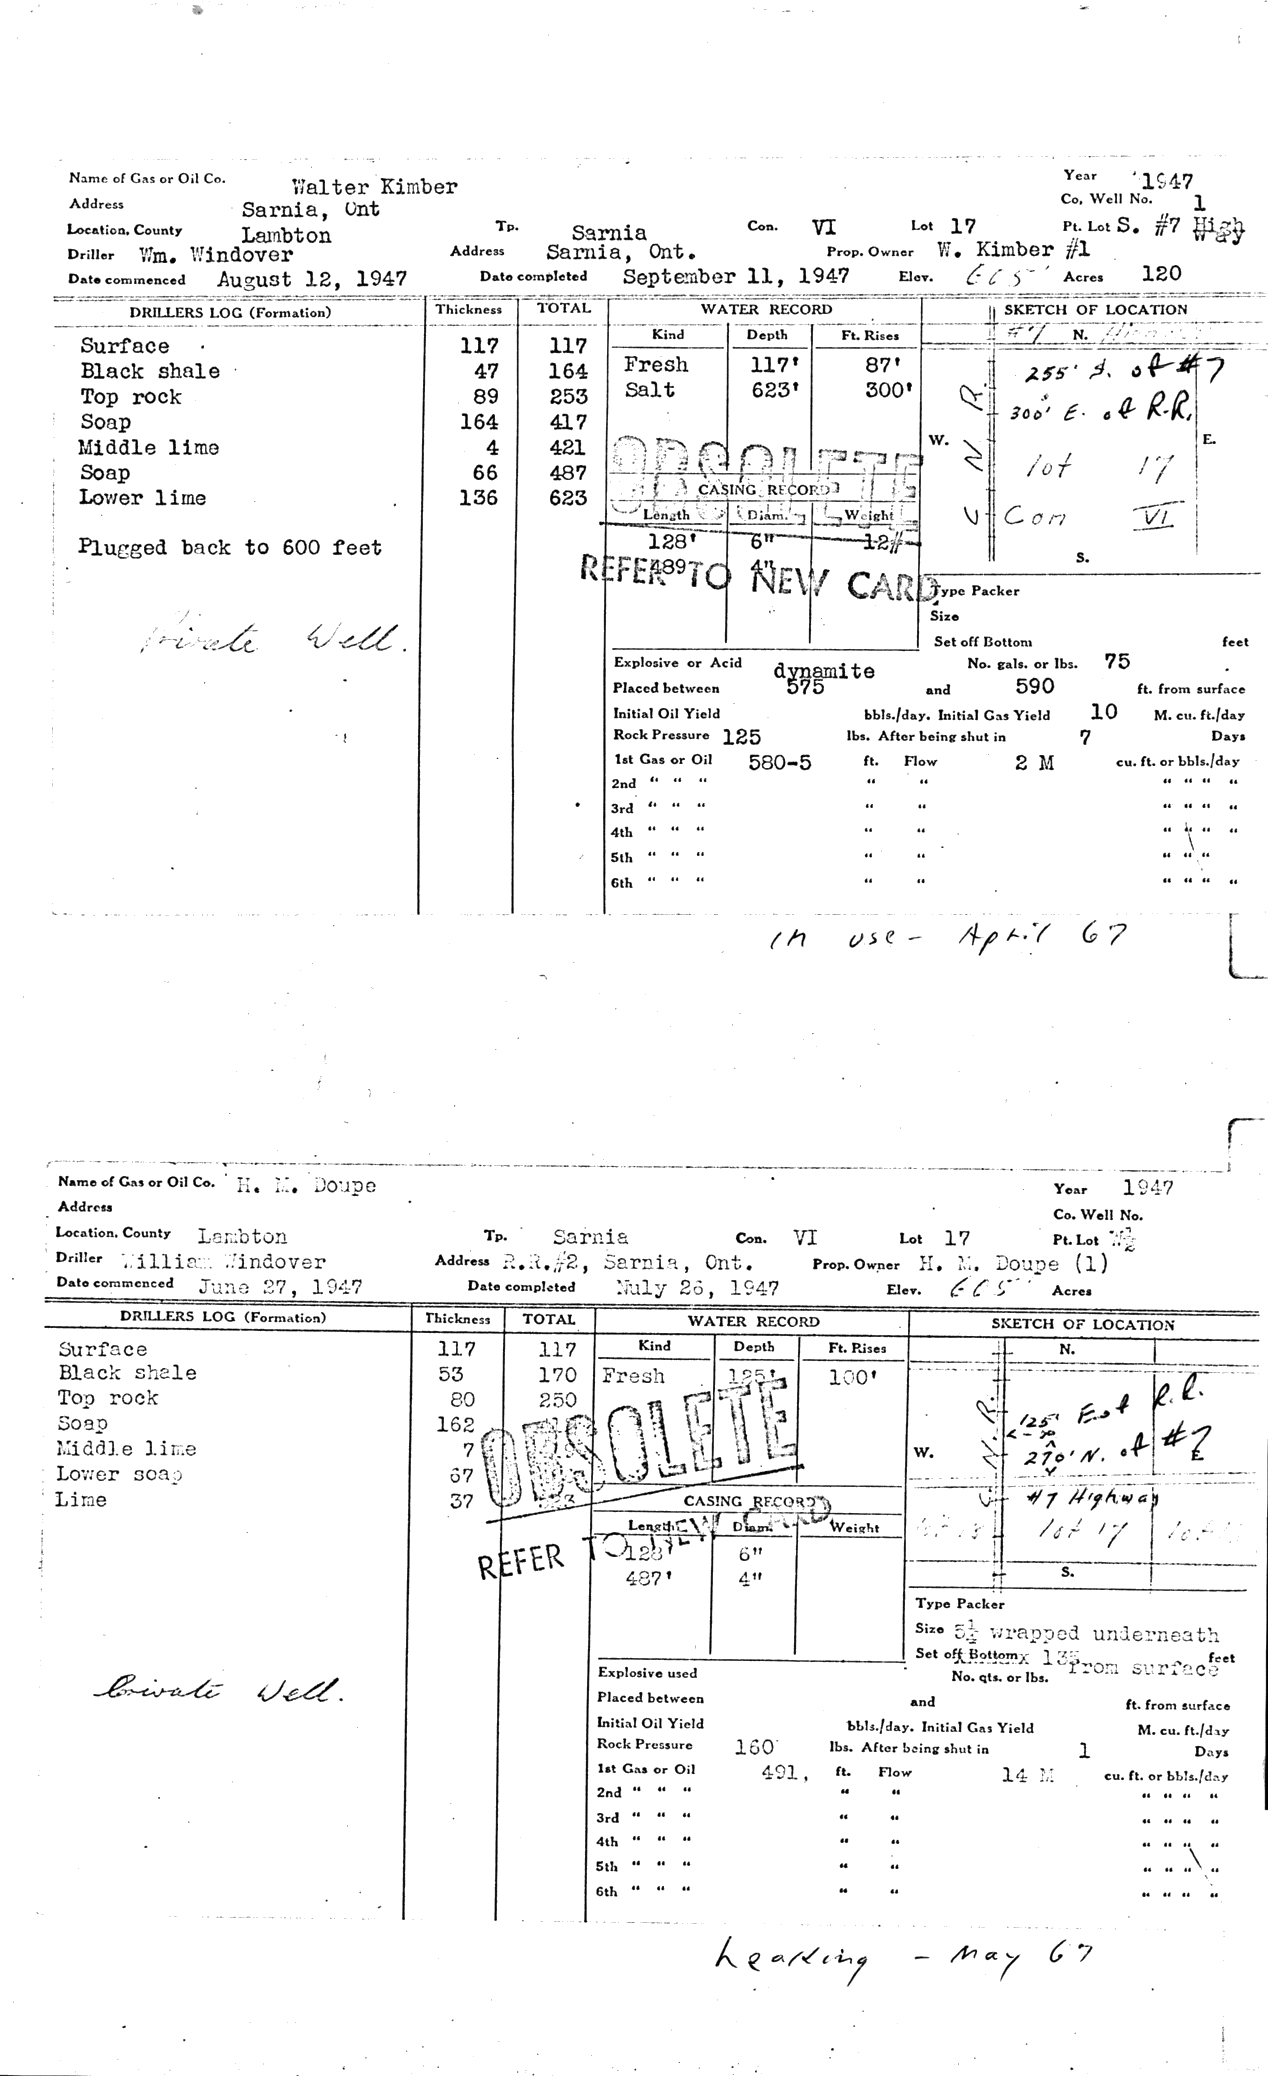 Name of Gas or Oil Co. Walter Kimber Year 1947
Address Sarnia, Ont Co. Well No. 1
Location, County Lambton Tp. Sarnia Con. VI Lot 17 Pt. Lot S. #7 High Way
Driller Wm. Windover Address Sarnia, Ont. Prop. Owner W. Kimber #1
Date commenced August 12, 1947 Date completed September 11, 1947 Elev. 665 Acres 120
DRILLERS LOG (Formation) Thickness TOTAL WATER RECORD SKETCH OF LOCATION
Kind Depth Ft. Rises #7 N.
Surface 117 117 Fresh 117' 87' 255' S. of #7
Black shale 47 164 Salt 623' 300'
Top rock 89 253 300' E. of R.R.
Soap 164 417
Middle lime 4 421 OBSOLETE W. E.
Soap 66 487 CASING RECORD lot 17
Lower lime 136 623 Length Diam. Weight Con VI
Plugged back to 600 feet 128' 6" 12# S.
489 4"
REFER TO NEW CARD
C N R.
Type Packer
Size
Private Well. Set off Bottom feet
Explosive or Acid dynamite No. gals. or lbs. 75
Placed between 575 and 590 ft. from surface
Initial Oil Yield bbls./day. Initial Gas Yield 10 M. cu. ft./day
Rock Pressure 125 lbs. After being shut in 7 Days
1st Gas or Oil 580-5 ft. Flow 2 M cu. ft. or bbls./day
2nd " " " " " " " " "
3rd " " " " " " " " "
4th " " " " " " " " "
5th " " " " " " " "
6th " " " " " " " " "
In use - April 67
Name of Gas or Oil Co. H. M. Doupe Year 1947
Address Co. Well No.
Location, County Lambton Tp. Sarnia Con. VI Lot 17 Pt. Lot W½
Driller William Windover Address R.R.#2, Sarnia, Ont. Prop. Owner H. M. Doupe (1)
Date commenced June 27, 1947 Date completed Nuly 26, 1947 Elev. 665 Acres
DRILLERS LOG (Formation) Thickness TOTAL WATER RECORD SKETCH OF LOCATION
Surface 117 117 Kind Depth Ft. Rises N.
Black shale 53 170 Fresh 125' 100'
Top rock 80 250 125' E of R.R.
Soap 162
Middle lime 7 OBSOLETE W. 270' N. of #7 E
Lower soap 67
Lime 37 CASING RECORD #7 Highway
Length Diam. Weight lot 17
REFER TO NEW CARD
128' 6"
487' 4" S.
C. N. R.
Type Packer
Size 5½ wrapped underneath
Set off Bottom 135 from surface feet
Private Well.
Explosive used No. qts. or lbs.
Placed between and ft. from surface
Initial Oil Yield bbls./day. Initial Gas Yield M. cu. ft./day
Rock Pressure 160 lbs. After being shut in 1 Days
1st Gas or Oil 491, ft. Flow 14 M cu. ft. or bbls./day
2nd " " " " " " " " "
3rd " " " " " " " " "
4th " " " " " " " " "
5th " " " " " " " " "
6th " " " " " " " " "
Leaking - May 67